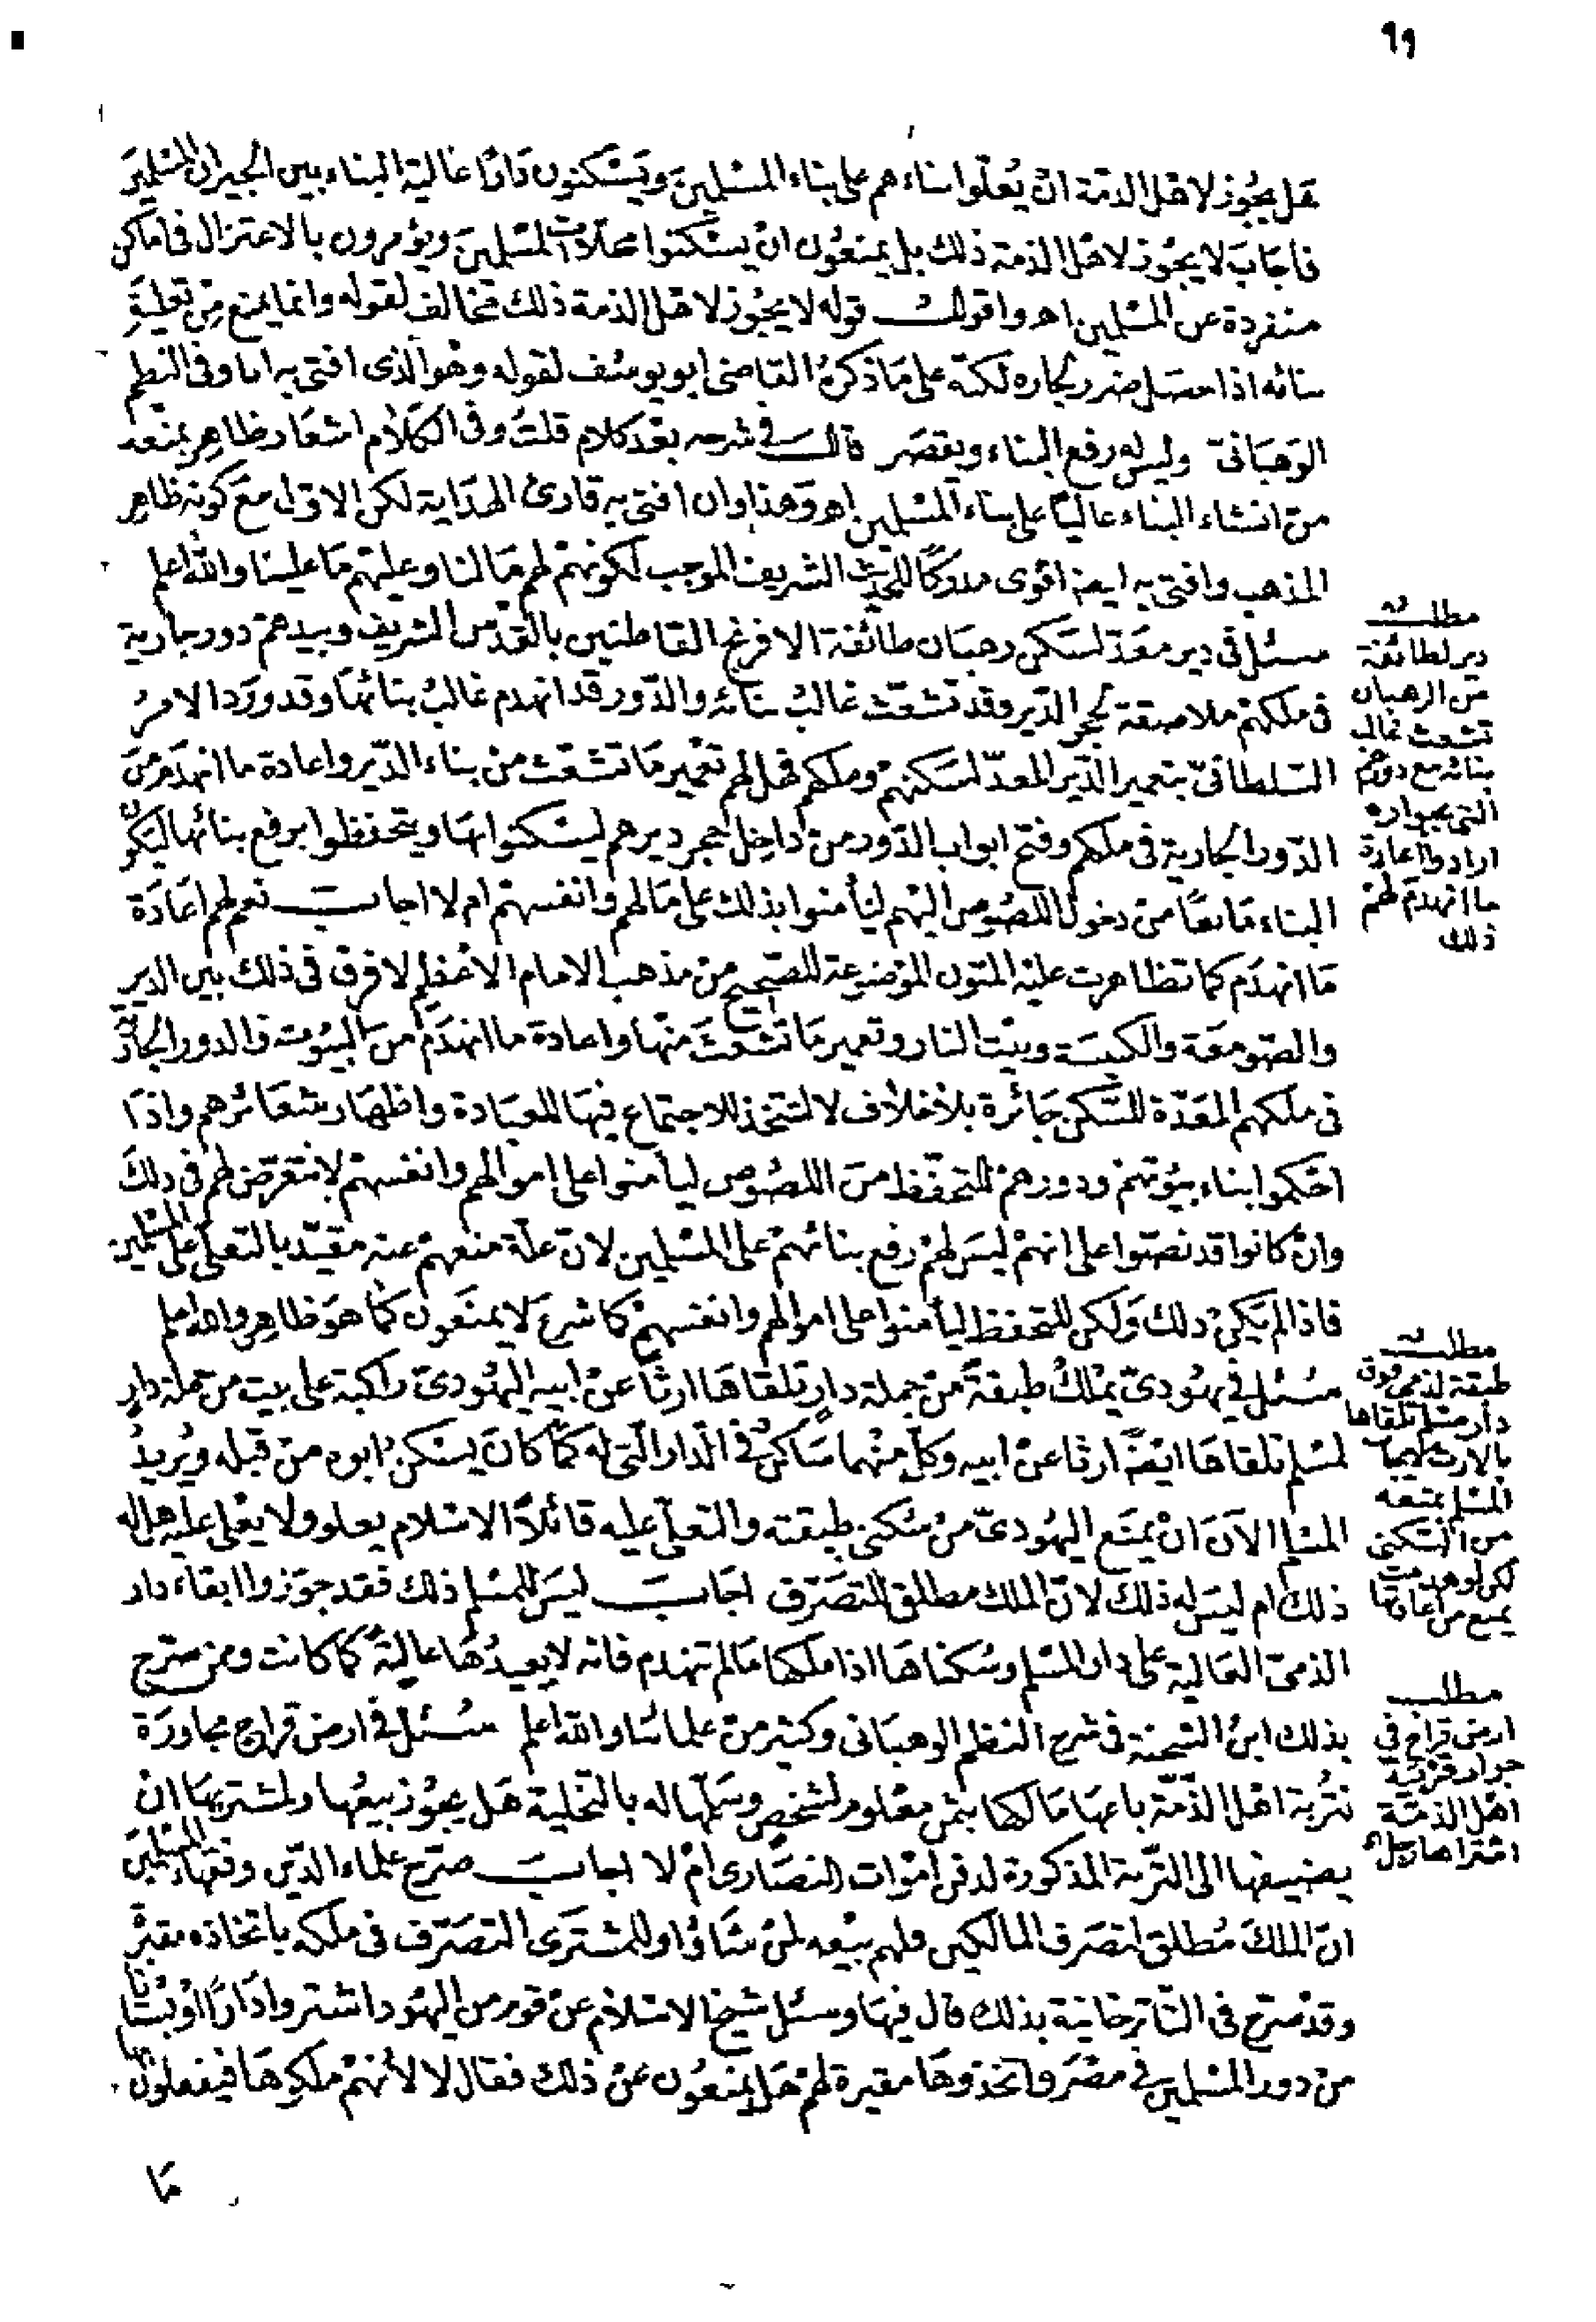 ٩٦
هل يجوز لاهل الذمة ان يعلوا بناءهم على بناء المسلمين ويسكنون دارا عالية البناء بين الجيران المسلمين
فاجاب لا يجوز لاهل الذمة ذلك بل يمنعون ان يسكنوا محلات المسلمين ويؤمرون بالاعتزال في اماكن
منفردة عن المسلمين اهـ واقول قوله لا يجوز لاهل الذمة ذلك مخالف لقوله وانما يمنع من تعلية
بنائه اذا حصل ضرر لجاره لكنه على ما ذكره القاضي ابو يوسف لقوله وهو الذي افتى به انا وفي النظم
الوهباني وليس له رفع البناء ويقصر قال في شرحه بعد كلام قلت وفي الكلام اشعار ظاهر بمنعه
من انشاء البناء عاليا على بناء المسلمين اهـ وهذا وان افتى به قارئ الهداية لكن الاول مع كونه ظاهر
المذهب وافتى به ايضا اقوى مدركا للحديث الشريف الموجب لكونهم لهم ما لنا وعليهم ما علينا والله اعلم
سئل في دير معد لسكن رهبان طائفة الافرنج القاطنين بالقدس الشريف وبيدهم دور جارية
في ملكهم ملاصقة لحجر الدير وقد تشعث غالب بنائه والدور قد انهدم غالب بنائها وقد ورد الامر
السلطاني بتعمير الدير المعد لسكنهم وملكهم فهل لهم تعمير ما تشعث من بناء الدير واعادة ما انهدم من
الدور الجارية في ملكهم وفتح ابواب الدور من داخل حجر ديرهم ليسكنوا بها ويتحفظوا برفع بنائها ليكون
البناء مانعا من دخول اللصوص اليهم ليأمنوا بذلك على مالهم وانفسهم ام لا اجاب نعم لهم اعادة
ما انهدم كما تظاهرت عليه المتون الموضوعة للصحيح من مذهب الامام الاعظم لا فرق في ذلك بين الدير
والصومعة والكنيسة وبيت النار وتعمير ما تشعث منها واعادة ما انهدم من البيوت والدور الجارية
في ملكهم المعدة للسكن جائزة بلا خلاف لا لتتخذ للاجتماع فيها للعبادة واظهار شعائرهم واذا
احكموا بناء بيوتهم ودورهم للتحفظ من اللصوص ليأمنوا على اموالهم وانفسهم لا متعرض لهم في ذلك
وان كانوا قد نصوا على انهم ليس لهم رفع بنائهم على المسلمين لان علة منعهم عنه مقيد بالتعلي على المسلمين
فاذا لم يكن ذلك ولكن للتحفظ ليأمنوا على اموالهم وانفسهم كما شرع لا يمنعون كما هو ظاهر والله اعلم
سئل في يهودي يملك طبقة من جملة دار تلقاها ارثا عن ابيه اليهودي راكبة على بيت من جملة دار
لمسلم تلقاها ايضا ارثا عن ابيه وكل منهما ساكن في الدار التي له كما كان يسكن ابوه من قبله ويريد
المسلم الآن ان يمنع اليهودي من سكنى طبقته والتعلي عليه قائلا الاسلام يعلو ولا يعلى عليه هل له
ذلك ام ليس له ذلك لان الملك مطلق للتصرف اجاب ليس للمسلم ذلك فقد جوزوا ابقاء دار
الذمي العالية على دار المسلم وسكناها اذا ملكها ما لم تنهدم فانه لا يعيدها عالية كما كانت وممن صرح
بذلك ابن الشحنة في شرح النظم الوهباني وكثير من علمائنا والله اعلم سئل في ارض قراح مجاورة
لتربة اهل الذمة باعها مالكها بثمن معلوم لشخص وسلمها له بالتخلية هل يجوز بيعها ولمشتريها ان
يضيفها الى التربة المذكورة لدفن اموات النصارى ام لا اجاب صرح علماء الدين وفقهاء المسلمين
ان الملك مطلق لتصرف المالكين فلهم بيعه لمن شاؤا وللمشتري التصرف في ملكه باتخاذه مقبرة
وقد صرح في التاترخانية بذلك قال فيها وسئل شيخ الاسلام عن قوم من اليهود اشتروا دارا او بستانا
من دور المسلمين في مصر واتخذوها مقبرة لهم هل يمنعون عن ذلك فقال لا لأنهم ملكوها فيفعلون بها
ما
مطلب
دير لطائفة
من الرهبان
تشعث غالب
بنائه مع دورهم
التي بجواره
ارادوا اعادة
ما انهدم لهم
ذلك
مطلب
طبقة لذمي فوق
دار مسلم تلقاها
بالارث ليس
للمسلم منعه
من السكنى
لكن لو هدمت
يمنع من اعادتها
مطلب
ارض قراح في
جوار تربة
اهل الذمة
اشتراها رجل